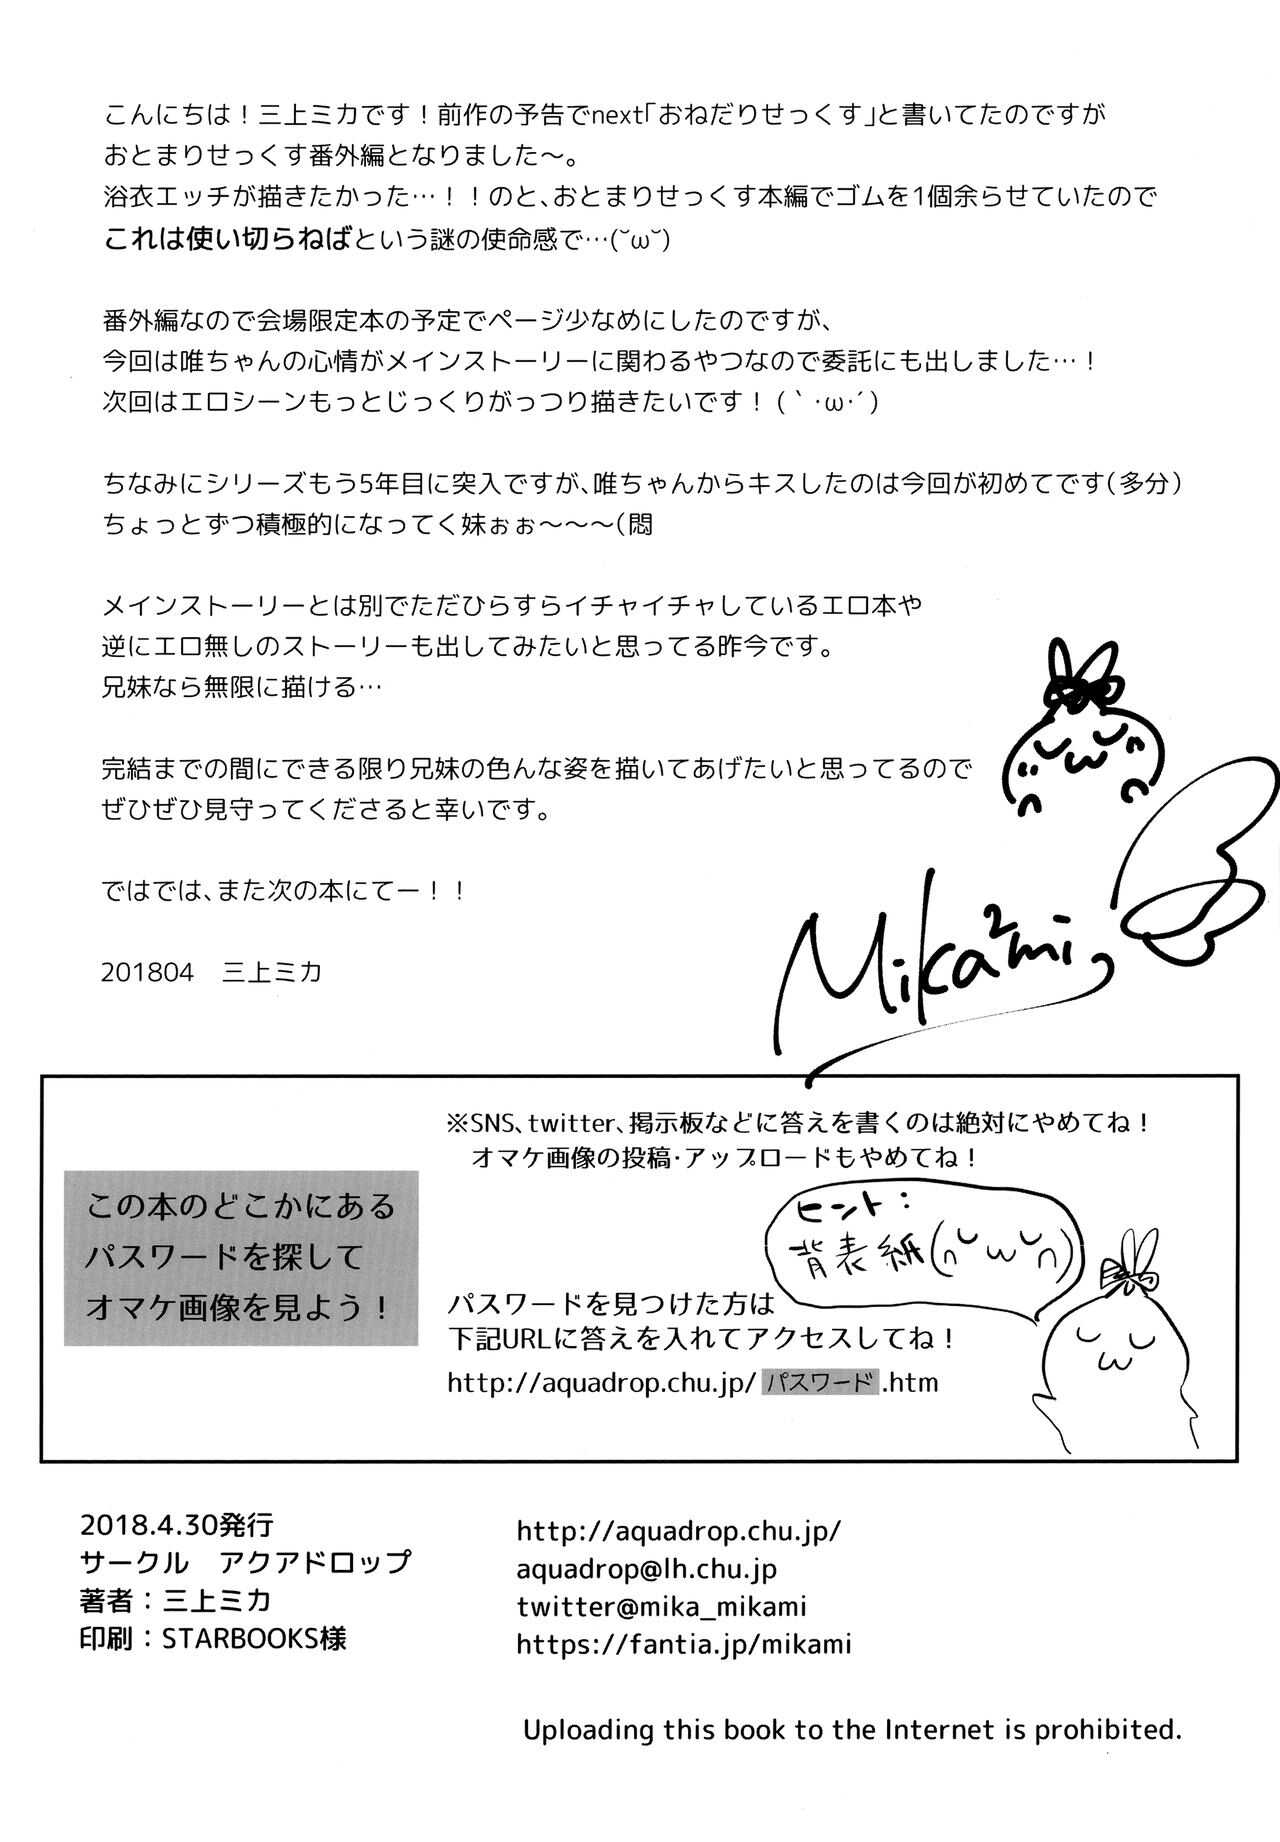 こんにちは！三上ミカです！前作の予告でnext「おねだりせっくす」と書いてたのですが
おとまりせっくす番外編となりました～。
浴衣エッチが描きたかった…！！のと、おとまりせっくす本編でゴムを1個余らせていたので
これは使い切らねばという謎の使命感で…(˘ω˘)
番外編なので会場限定本の予定でページ少なめにしたのですが、
今回は唯ちゃんの心情がメインストーリーに関わるやつなので委託にも出しました…！
次回はエロシーンもっとじっくりがっつり描きたいです！(｀･ω･´)
ちなみにシリーズもう5年目に突入ですが、唯ちゃんからキスしたのは今回が初めてです(多分)
ちょっとずつ積極的になってく妹ぉぉ～～～(悶
メインストーリーとは別でただひらすらイチャイチャしているエロ本や
逆にエロ無しのストーリーも出してみたいと思ってる昨今です。
兄妹なら無限に描ける…
完結までの間にできる限り兄妹の色んな姿を描いてあげたいと思ってるので
ぜひぜひ見守ってくださると幸いです。
ではでは、また次の本にてー！！
201804　三上ミカ
Mika²mi
この本のどこかにある
パスワードを探して
オマケ画像を見よう！
※SNS、twitter、掲示板などに答えを書くのは絶対にやめてね！
オマケ画像の投稿･アップロードもやめてね！
ヒント：
背表紙(∩˘ω˘∩)
パスワードを見つけた方は
下記URLに答えを入れてアクセスしてね！
http://aquadrop.chu.jp/ パスワード .htm
2018.4.30発行
サークル　アクアドロップ
著者：三上ミカ
印刷：STARBOOKS様
http://aquadrop.chu.jp/
aquadrop@lh.chu.jp
twitter@mika_mikami
https://fantia.jp/mikami
Uploading this book to the Internet is prohibited.